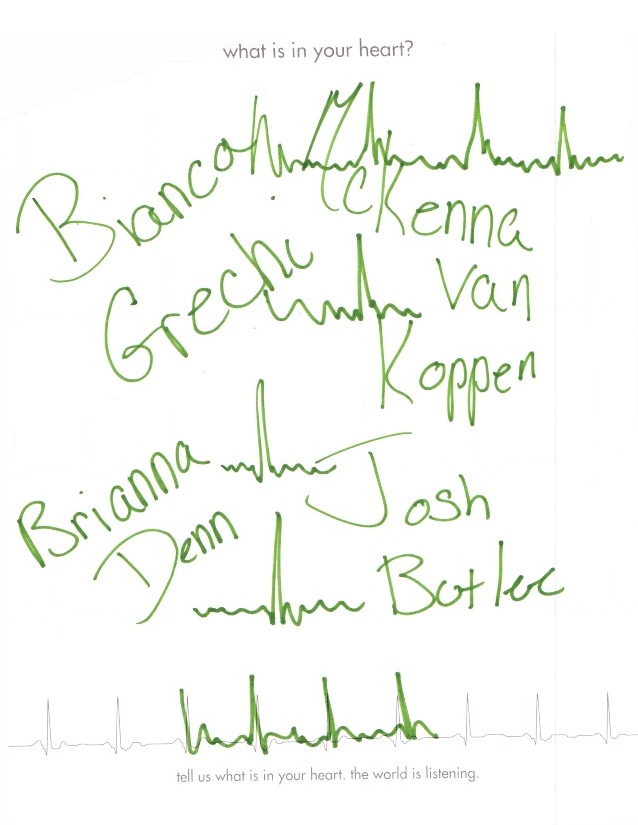 what is in your heart?
Bianca McKenna
Grechi Van
Koppen
Brianna Josh
Denn Butler
tell us what is in your heart. the world is listening.